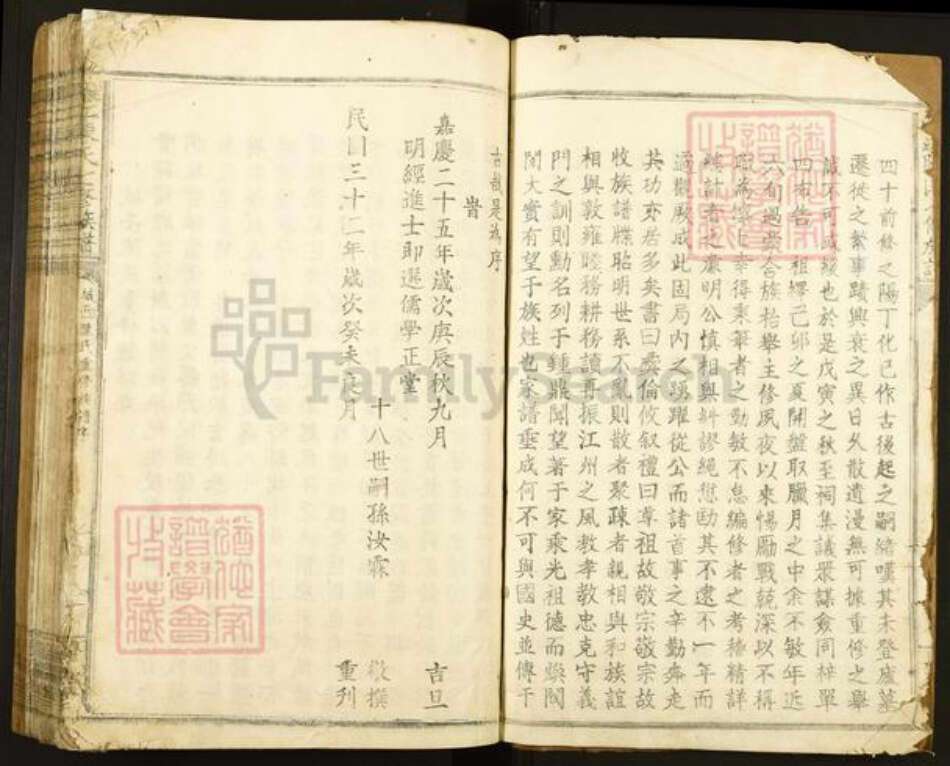 四十前修之陽丁化已作古後起之嗣緒嘆其未登底墓
遷徙之繁事蹟興衰之異日久散遺漫無可據重修之舉
誠不可或緩也於是戊寅之秋至祠集議眾謀僉同梓單
四布告 祖繹己卯之夏開盤取臘月之中余不敏年近
六旬過蒙合族抬舉主修夙夜以來惕勵戰兢深以不稱
幸得秉筆者之勤敏不怠編修者之考稽精詳
總計者之廉明公慎相與糾謬繩愆助其不逮不一年而
適觀厥成此固局內之踴躍從公而諸首事之辛勤奔走
其功亦居多矣書曰彝倫攸敘禮曰尊祖故敬宗敬宗故
收族譜牒昭明世系不亂則散者聚疎者親相與和族誼
相與敦雍睦務耕務讀再振江州之風教孝教忠克守義
門之訓則勳名列于鍾鼎聞望著于家乘光祖德而煥閥
閱大實有望于族姓也家譜垂成何不可與國史並傳千
古哉是為序
旹
嘉慶二十五年歲次庚辰秋九月 吉旦
明經進士即選儒學正堂
十八世嗣孫汝霖 敬撰
民國三十二年歲次癸未 月 重刊
FamilySearch
譜學會
收藏
譜學會
收藏